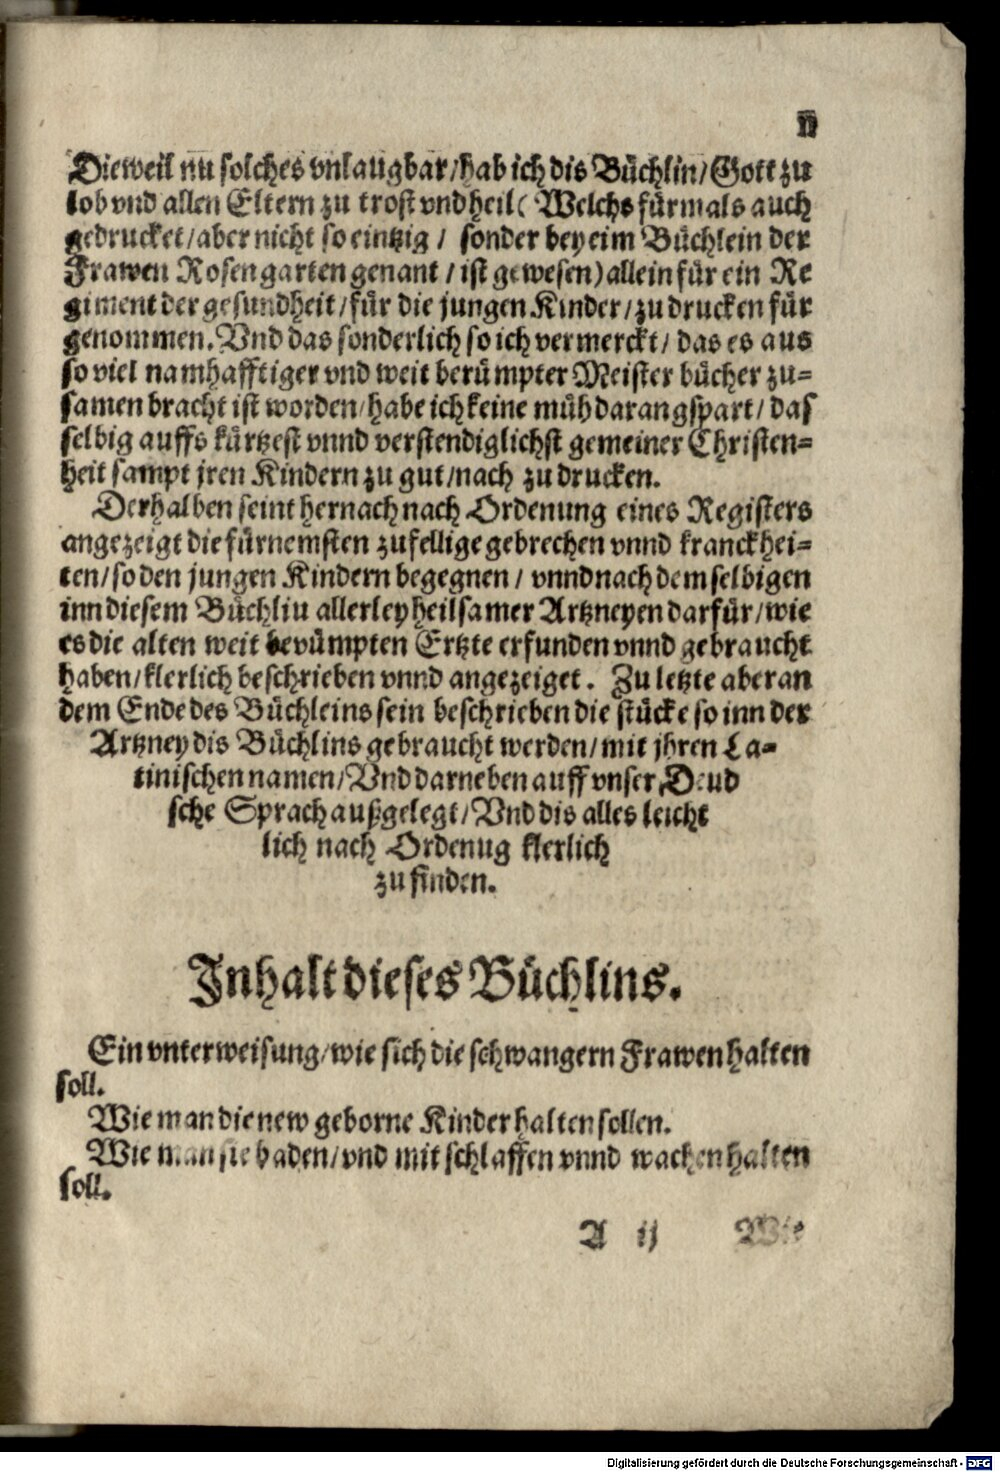 II
Dieweil nu solches vnlaugbar/hab ich dis Büchlin/Gott zu
lob vnd allen Eltern zu trost vnd heil( Welchs fürmals auch
gedrucket/aber nicht so eintzig / sonder bey eim Büchlein der
Frawen Rosengarten genant / ist gewesen) allein für ein Re
giment der gesundheit/für die jungen Kinder/zu drucken für
genommen. Vnd das sonderlich so ich vermerckt/ das es aus
so viel namhafftiger vnd weit berümpter Meister bücher zu-
samen bracht ist worden/habe ich keine müh daran gspart/ das
selbig auffs kürtzest vnnd verstendiglichst gemeiner Christen-
heit sampt jren Kindern zu gut/nach zu drucken.
Derhalben seint hernach nach Ordenung eines Registers
angezeigt die fürnemsten zufellige gebrechen vnnd kranckhei-
ten/so den jungen Kindern begegnen / vnnd nach dem selbigen
inn diesem Büchliu allerley heilsamer Artzneyen darfür/wie
es die alten weit berümpten Ertzte erfunden vnnd gebraucht
haben/klerlich beschrieben vnnd angezeiget. Zu letzte aber an
dem Ende des Büchleins sein beschrieben die stücke so inn der
Artzney dis Büchlins gebraucht werden/mit jhren La-
tinischen namen/Vnd darneben auff vnser Deud
sche Sprach außgelegt/Vnd dis alles leicht
lich nach Ordenug klerlich
zu finden.
Inhalt dieses Büchlins.
Ein vnterweisung/wie sich die schwangern Frawen halten
soll.
Wie man die new geborne Kinder halten sollen.
Wie man sie baden/vnd mit schlaffen vnnd wachen halten
soll.
A ij Wie
Digitalisierung gefördert durch die Deutsche Forschungsgemeinschaft - DFG